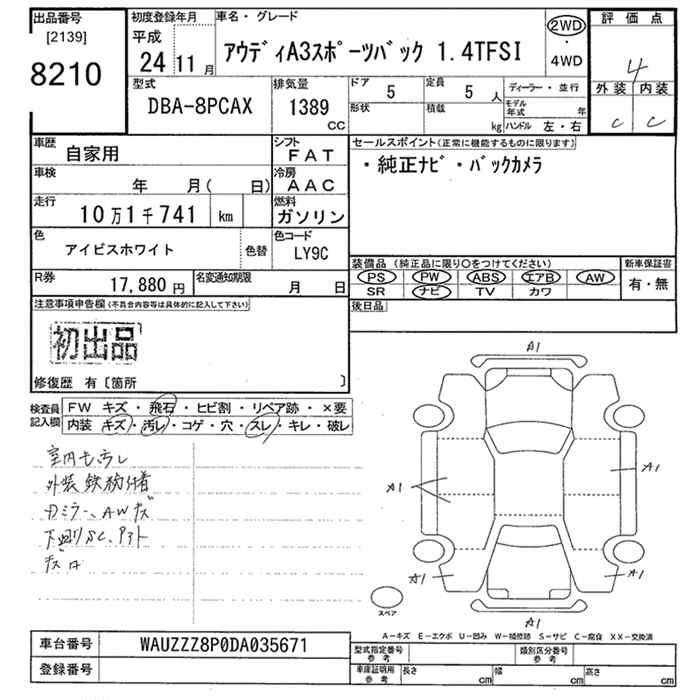 出品番号
[2139]
8210
初度登録年月
平成
24 11 月
車名・グレード
アウディA3スポーツバック 1.4TFSI
2WD
・
4WD
評価点
4
外装 内装
C C
型式
DBA-8PCAX
排気量
1389
CC
ドア
5
定員
5 人
形状
積載
kg
ディーラー・並行
モデル年式 年
ハンドル 左・右
車歴
自家用
シフト
FAT
車検
年 月( 日)
冷房
AAC
走行
10万1千741 km
燃料
ガソリン
色
アイビスホワイト
色替
色コード
LY9C
R券
17,880 円
名変通知期限
月 日
セールスポイント(正常に機能するものに限ります)
・純正ナビ・バックカメラ
装備品 (純正品に限り○をつけてください)
PS PW ABS エアB AW
SR ナビ TV カワ
新車保証書
有・無
後日品
注意事項申告欄(不具合内容等は具体的に記入して下さい)
初出品
修復歴 有〔箇所 〕
検査員記入欄
FW キズ・飛石・ヒビ割・リペア跡・×要
内装 キズ・汚レ・コゲ・穴・スレ・キレ・破レ
外装鉄粉付着
A1
A1
A1
A1
A1
A1
スペア
A-キズ E-エクボ U-凹み W-補修跡 S-サビ C-腐食 XX-交換済
車台番号
WAUZZZ8P0DA035671
登録番号
型式指定番号
参考
類別区分番号
参考
車庫証明用
参考
長さ cm
幅 cm
高さ cm